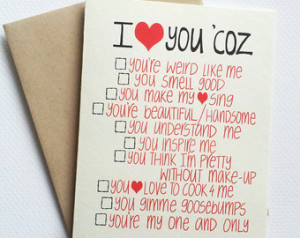 I ♥ YOU 'COZ
YOU'RE WEIRD LIKE ME
YOU SMELL GOOD
YOU MAKE MY ♥ SING
YOU'RE BEAUTIFUL/HANDSOME
YOU UNDERSTAND ME
YOU INSPIRE ME
YOU THINK I'M PRETTY
WITHOUT MAKE-UP
YOU ♥ LOVE TO COOK 4 ME
YOU GIMME GOOSEBUMPS
YOU'RE MY ONE AND ONLY